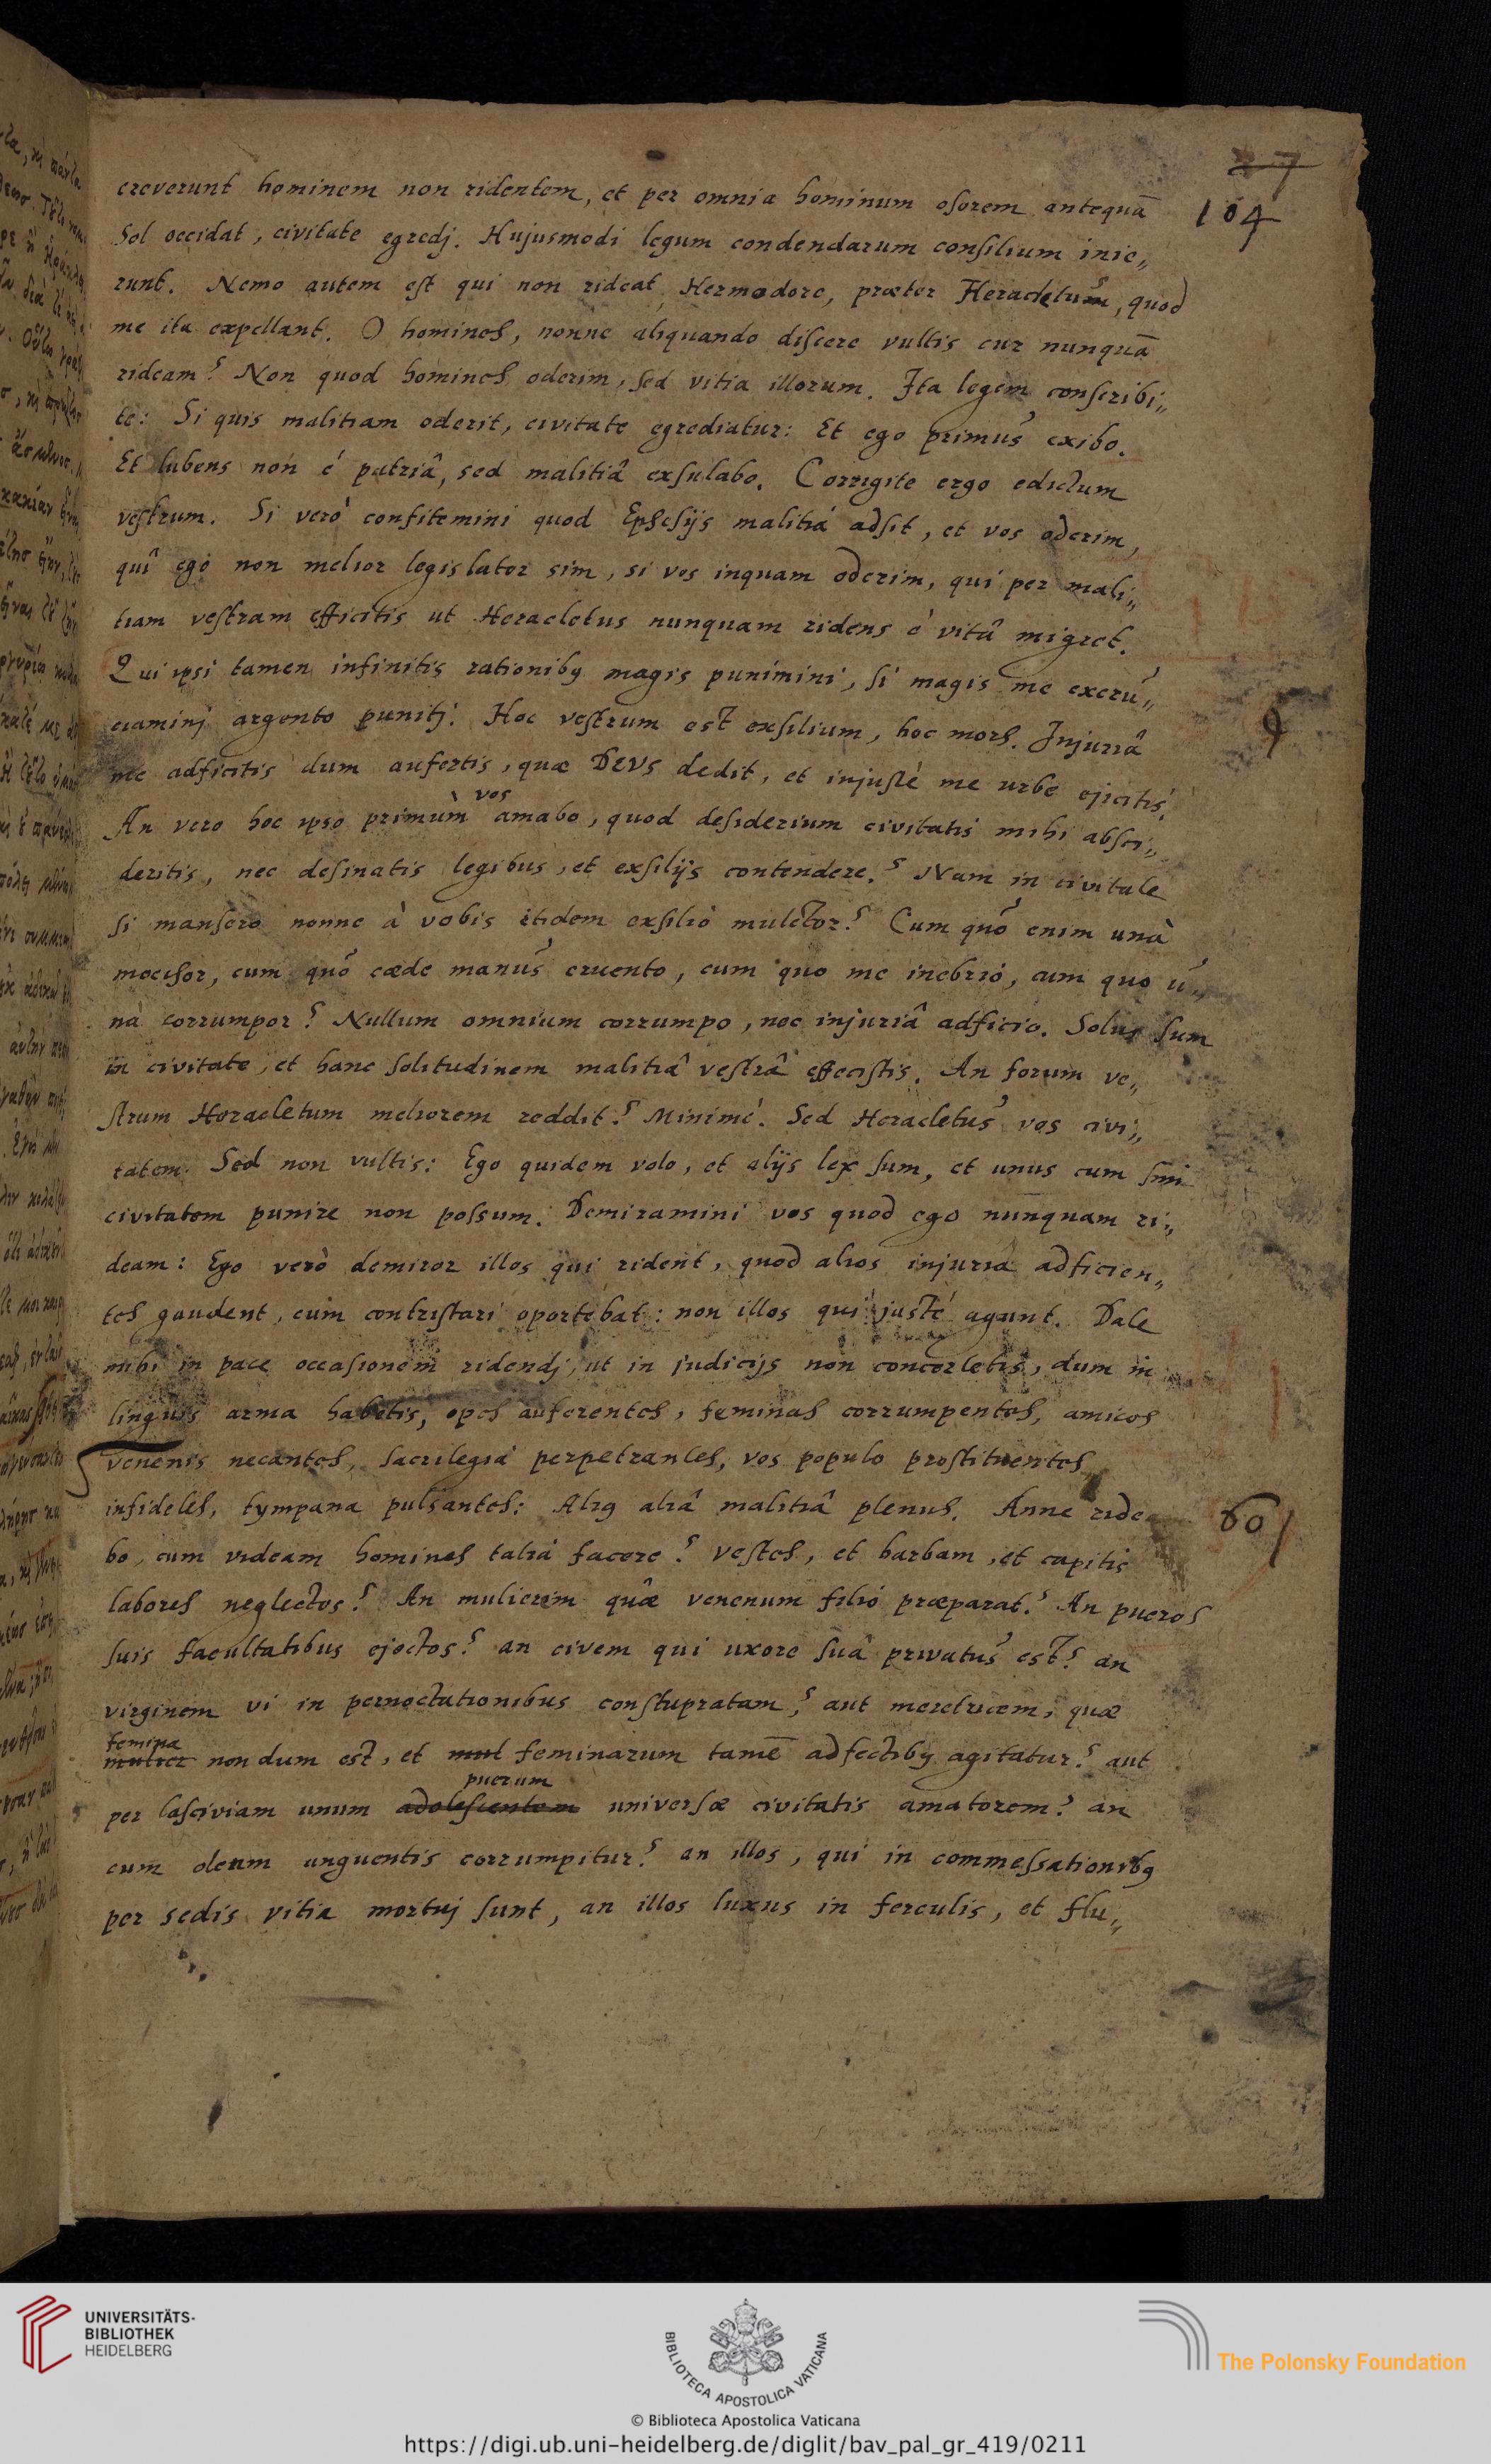 27
104
creverunt hominem non ridentem, et per omnia hominum osorem antequā
Sol occidat, civitate egredj. Hujusmodi legum condendarum consilium inie„
runt. Nemo autem est qui non rideat Hermodore, præter Heracletum, quod
me ita expellant. O homines, nonne aliquando discere vultis cur nunquā
rideam? Non quod homines oderim, sed vitia illorum. Ita legem conscribi„
te: Si quis malitiam oderit, civitate egrediatur: Et ego primus exibo.
Et lubens non é patriâ, sed malitiâ exsulabo. Corrigite ergo edictum
vestrum. Si verò confitemini quod Ephesijs malitiá adsit, et vos oderim,
quî ego non melior legislator sim, si vos inquam oderim, qui per mali„
tiam vestram efficitis ut Heracletus nunquam ridens é vitâ migret.
Qui ipsi tamen infinitis rationibꝰ magis punimini, si magis me excru„
ciaminj argento punitj. Hoc vestrum est exsilium, hoc mors. Injuriâ
me adficitis dum aufertis, quæ DEVS dedit, et injusté me urbe ejicitis.
vos
An vero hoc ipso primùm amabo, quod desiderium civitatis mihi absci„
deritis, nec desinatis legibus, et exsilijs contendere? Nam in civitate
si mansero nonne à vobis itidem exsilio mulctor? Cum quo enim unà
mœchor, cum quo cæde manus cruento, cum quo me inebrio, cum quo u„
nà corrumpor? Nullum omnium corrumpo, nec injuriâ adficio. Solus sum
in civitate, et hanc solitudinem malitiâ vestrâ effecistis. An forum ve„
strum Heracletum meliorem reddit? Minimé. Sed Heracletus vos civi„
tatem. Sed non vultis: Ego quidem volo, et alijs lex sum, et unus cum sim
civitatem punire non possum. Demiramini vos quod ego nunquam ri„
deam: Ego verò demiror illos qui rident, quod alios injuria adficien„
tes gaudent, cum contristari oportebat: non illos qui justé agunt. Date
mihi in pace occasionem ridendj, ut in judicijs non concertetis, dum in
linguis arma habetis, opes auferentes, feminas corrumpentes, amicos
venenis necantes, sacrilegia perpetrantes, vos populo prostituentes
infideles, tympana pulsantes: Aliꝰ aliâ malitiâ plenus. Anne ride
60
bo, cum videam homines talia facere? Vestes, et barbam, et capitis
labores neglectos? An mulierem quæ venenum filio præparat? An pueros
suis facultatibus ejectos? an civem qui uxore suâ privatus est? an
virginem vi in pernoctationibus constupratam? aut meretricem, quæ
femina
mulier non dum est, et mul feminarum tamē adfectibꝰ agitatur? aut
puerum
per lasciviam unum adolescentem universæ civitatis amatorem? an
cum oleum unguentis corrumpitur? an illos, qui in commessationibꝰ
per sedis vitia mortuj sunt, an illos luxus in ferculis, et flu„
UNIVERSITÄTS-
BIBLIOTHEK
HEIDELBERG
BIBLIOTECA APOSTOLICA VATICANA
The Polonsky Foundation
© Biblioteca Apostolica Vaticana
https://digi.ub.uni-heidelberg.de/diglit/bav_pal_gr_419/0211